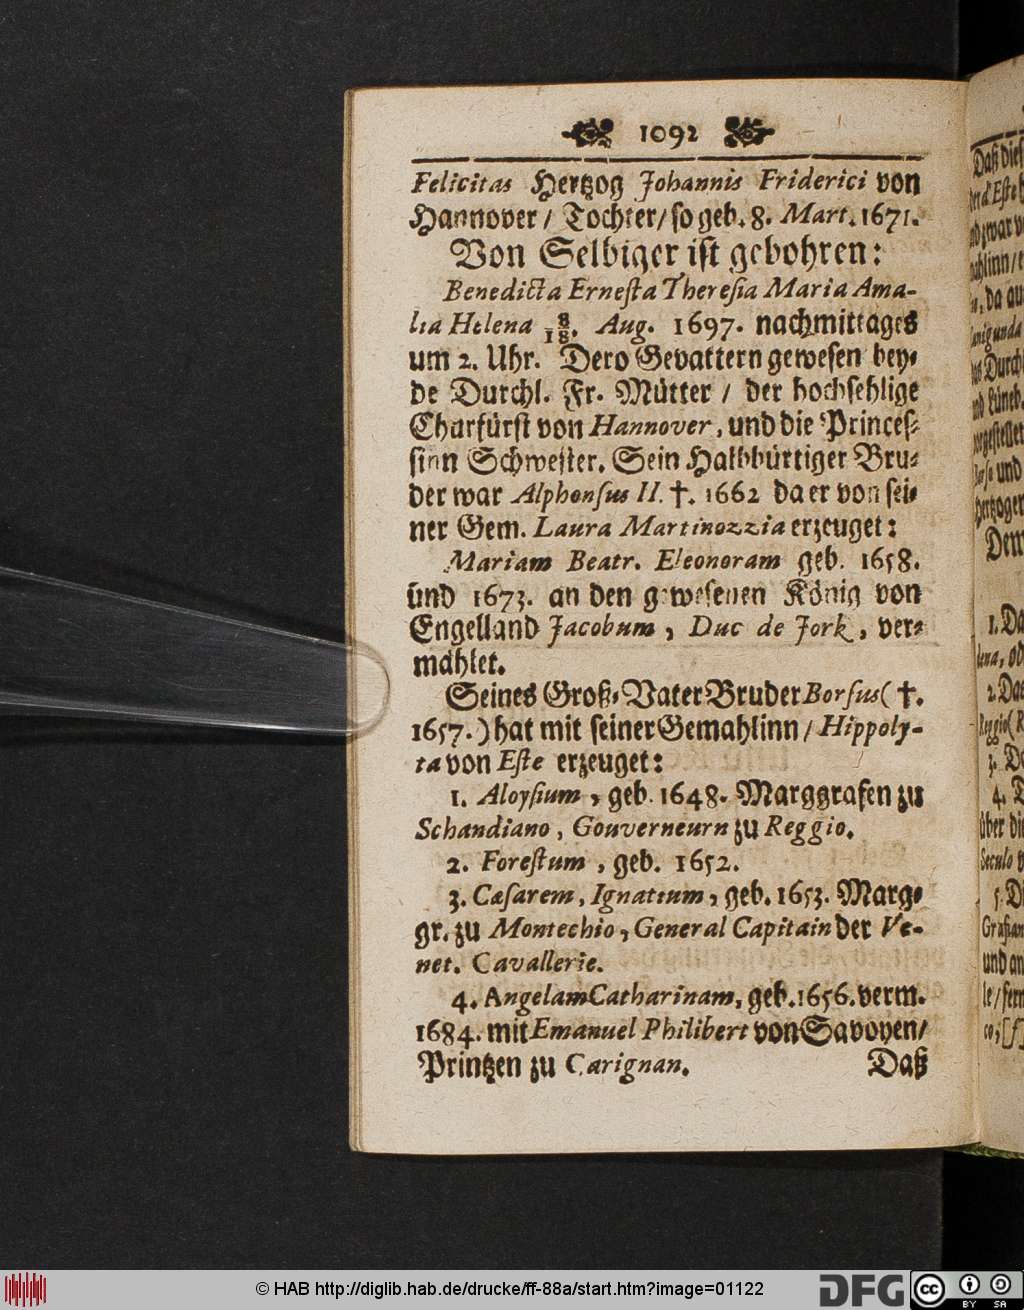 1092
Felicitas Hertzog Johannis Friderici von
Hannover / Tochter / so geb. 8. Mart. 1671.
Von Selbiger ist gebohren:
Benedicta Ernesta Theresia Maria Ama-
lia Helena 8/18. Aug. 1697. nachmittages
um 2. Uhr. Dero Gevattern gewesen bey-
de Durchl. Fr. Mütter / der hochsehlige
Churfürst von Hannover, und die Princes-
sinn Schwester. Sein Halbbürtiger Bru-
der war Alphonsus II. †. 1662 da er von sei-
ner Gem. Laura Martinozzia erzeuget:
Mariam Beatr. Eleonoram geb. 1658.
und 1673. an den gewesenen König von
Engelland Jacobum, Duc de Jork, ver-
mählet.
Seines Groß-Vater Bruder Borsus (†.
1657.) hat mit seiner Gemahlinn / Hippoly-
ta von Este erzeuget:
1. Aloysium, geb. 1648. Marggrafen zu
Schandiano, Gouverneurn zu Reggio.
2. Forestum, geb. 1652.
3. Cæsarem, Ignatium, geb. 1653. Marg-
gr. zu Montechio, General Capitain der Ve-
net. Cavallerie.
4. Angelam Catharinam, geb. 1656. verm.
1684. mit Emanuel Philibert von Savoyen /
Printzen zu Carignan.
Daß
© HAB http://diglib.hab.de/drucke/ff-88a/start.htm?image=01122
DFG
cc BY SA